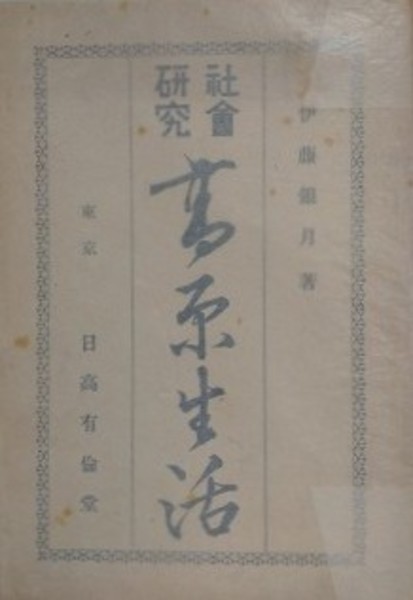 伊藤銀月著
社會
研究
高原生活
東京 日高有倫堂